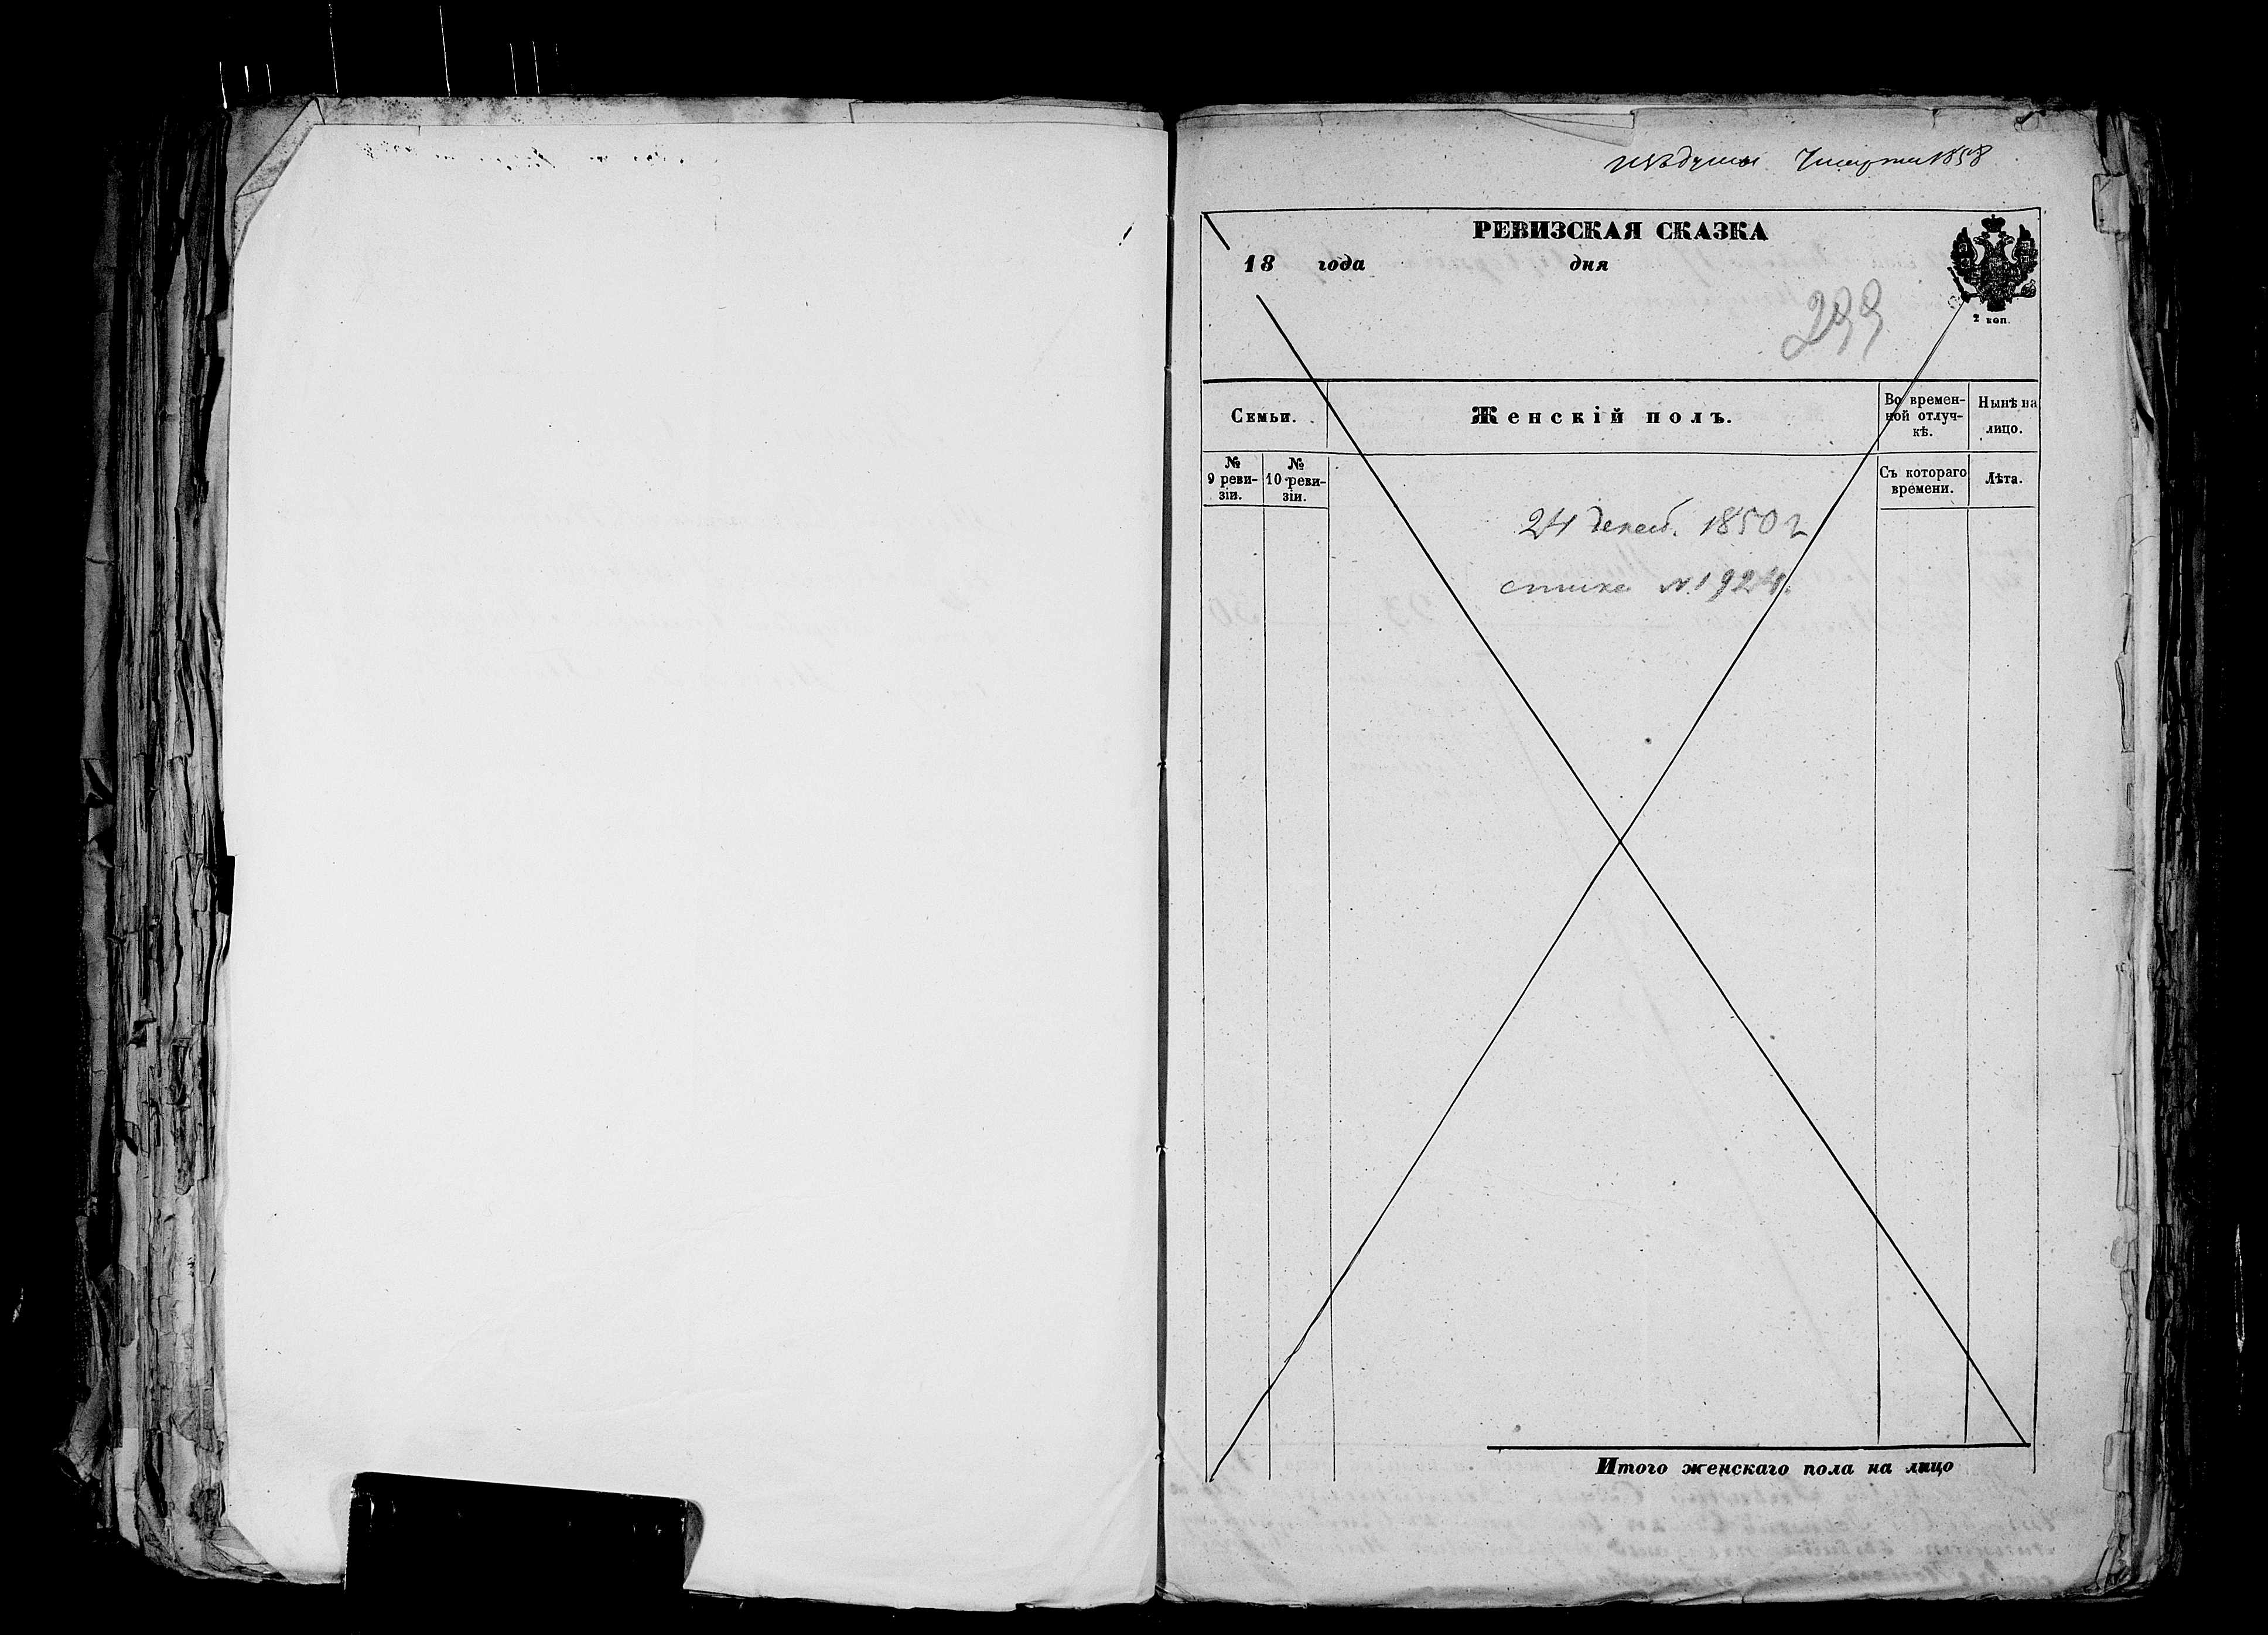 7 марта 1858
РЕВИЗСКАЯ СКАЗКА
18 года дня
2 коп.
299
Семьи. Женскій полъ. Во времен-ной отлуч-кѣ. Нынѣ на лицо.
№ 9 реви-зіи. № 10 реви-зіи. Съ котораго времени. Лѣта.
24 декаб. 1850 г
№ 1924.
Итого женскаго пола на лицо